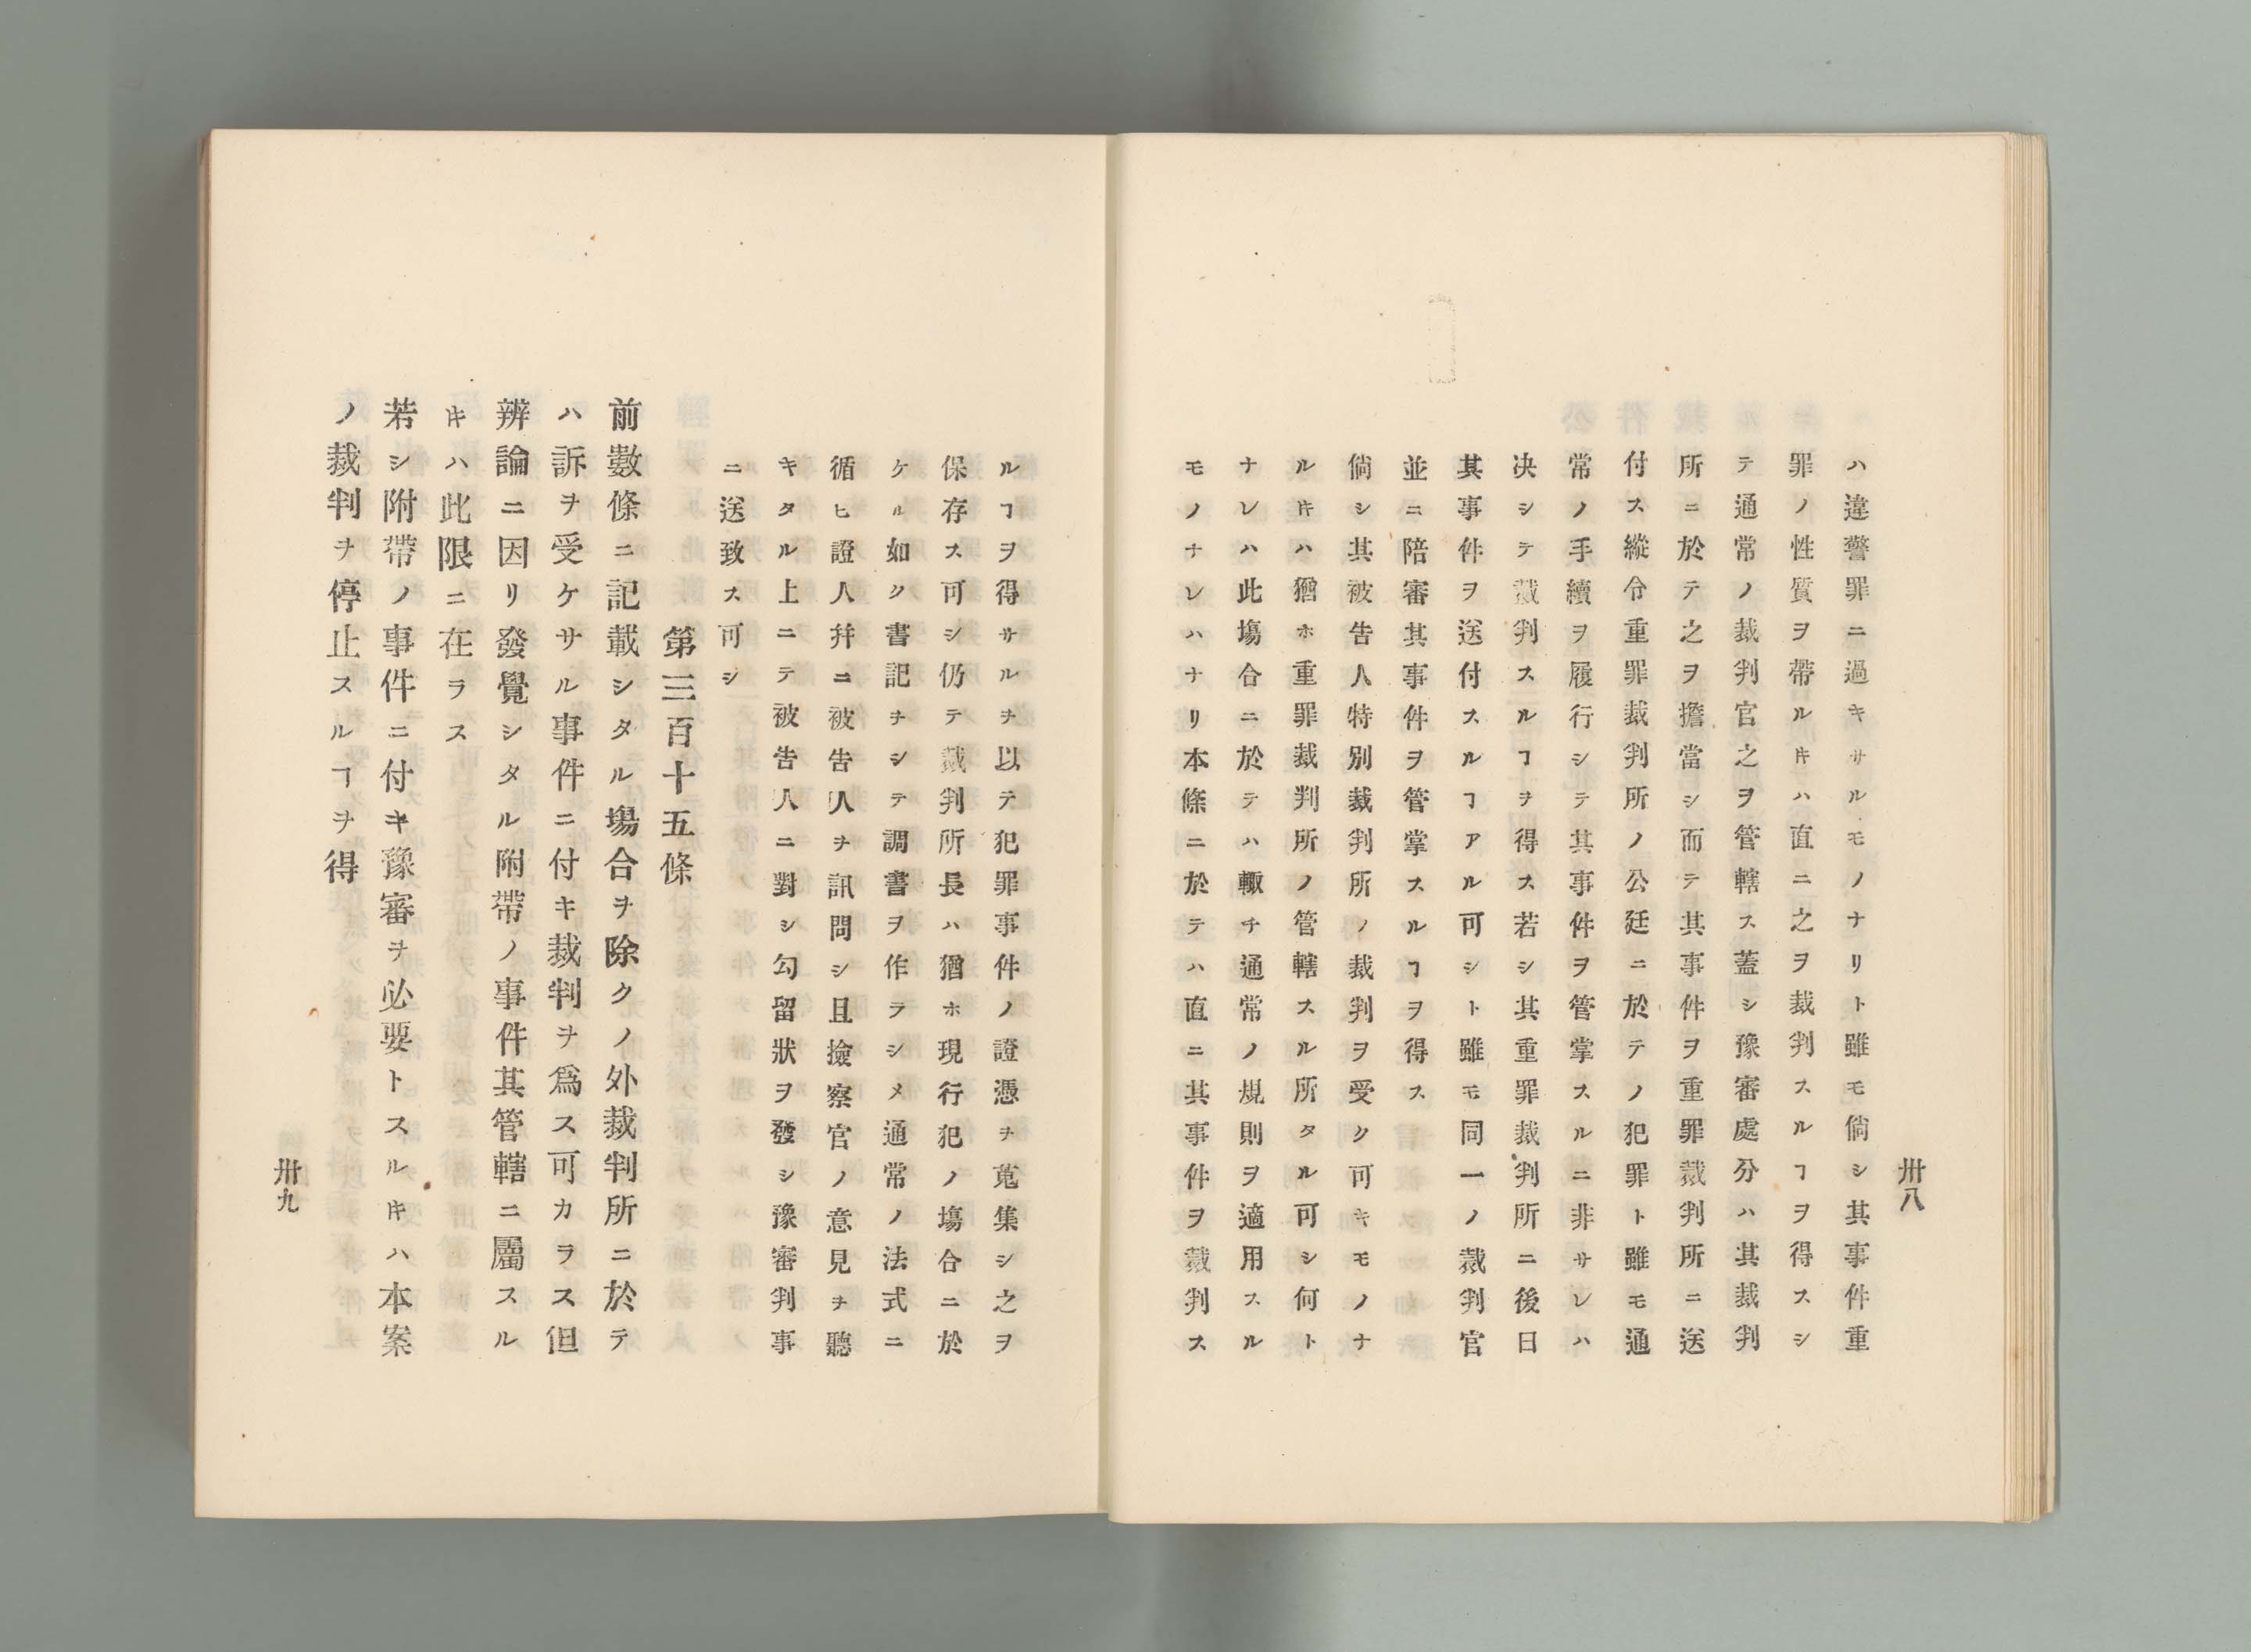 卅八
ハ違警罪ニ過キサルモノナリト雖モ倘シ其事件重
罪ノ性質ヲ帶ルキハ直ニ之ヲ裁判スルヿヲ得スシ
テ通常ノ裁判官之ヲ管轄ス蓋シ豫審處分ハ其裁判
所ニ於テ之ヲ擔當シ而テ其事件ヲ重罪裁判所ニ送
付ス縱令重罪裁判所ノ公廷ニ於テノ犯罪ト雖モ通
常ノ手續ヲ履行シテ其事件ヲ管掌スルニ非サレハ
决シテ裁判スルヿヲ得ス若シ其重罪裁判所ニ後日
其事件ヲ送付スルヿアル可シト雖モ同一ノ裁判官
並ニ陪審其事件ヲ管掌スルヿヲ得ス
倘シ其被告人特別裁判所ノ裁判ヲ受ク可キモノナ
ルキハ猶ホ重罪裁判所ノ管轄スル所タル可シ何ト
ナレハ此塲合ニ於テハ輙チ通常ノ規則ヲ適用スル
モノナレハナリ本條ニ於テハ直ニ其事件ヲ裁判ス
ルヿヲ得サルヲ以テ犯罪事件ノ證憑ヲ蒐集シ之ヲ
保存ス可シ仍テ裁判所長ハ猶ホ現行犯ノ塲合ニ於
ケル如ク書記ヲシテ調書ヲ作ラシメ通常ノ法式ニ
循ヒ證人幷ニ被告人ヲ訊問シ且撿察官ノ意見ヲ聽
キタル上ニテ被告人ニ對シ勾留狀ヲ發シ豫審判事
ニ送致ス可シ
第三百十五條
前數條ニ記載シタル塲合ヲ除クノ外裁判所ニ於テ
ハ訴ヲ受ケサル事件ニ付キ裁判ヲ爲ス可カラス但
辨論ニ因リ發覺シタル附帶ノ事件其管轄ニ屬スル
キハ此限ニ在ラス
若シ附帶ノ事件ニ付キ豫審ヲ必要トスルキハ本案
ノ裁判ヲ停止スルヿヲ得
卅九